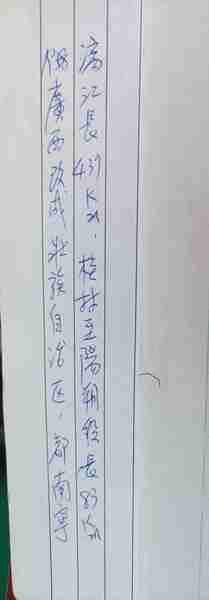 漓江長437Km，桂林至陽朔段長83Km
個廣西改成壯族自治区，都南寧